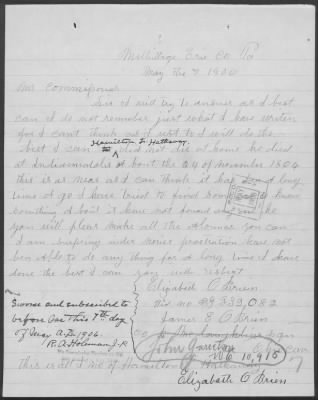 Millvillage Erie Co Pa
May the 7 1900
Mr Commisioned
Sir I will try to answer as I best
can I do not remember just what I have writen
for I cant think as I ust to I will do the
best I can Hamilton L Hathaway did not die at home he died
at Indianapolis a bout the 24 of November 1864
this is as near as I can think it has been a long
time a go I have tried to find some to know
somthing a bout it have not found any one
you will pleas make all the alowance you can
I am surfering under nerves prostration have not
ben able to do any thing for a long time I have
done the best I can yours with respect
Elizabeth O Brien
James E O Brien
Sworne and subscribed to
before me this 7th day
of May A.D. 1900
R. A. Holeman J.P.
John Garretson
No 10,915
this is all I no of Hamilton L Hathaway
Elizabeth O Brien